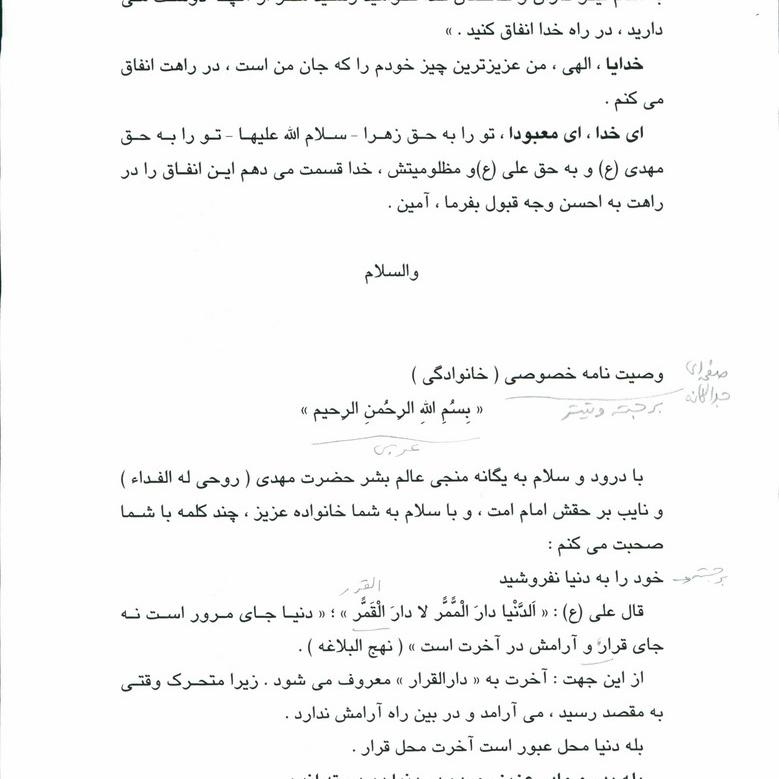 دارید ، در راه خدا انفاق کنید . »
خدایا ، الهی ، من عزیزترین چیز خودم را که جان من است ، در راهت انفاق
می کنم .
ای خدا ، ای معبودا ، تو را به حق زهرا – سلام الله علیها – تو را به حق
مهدی (ع) و به حق علی (ع)و مظلومیتش ، خدا قسمت می دهم این انفاق را در
راهت به احسن وجه قبول بفرما ، آمین .
والسلام
وصیت نامه خصوصی ( خانوادگی )
صفحه ای
جداگانه
برجسته و تیتر
« بِسْمِ اللهِ الرحْمنِ الرحیم »
عربی
با درود و سلام به یگانه منجی عالم بشر حضرت مهدی ( روحی له الفداء )
و نایب بر حقش امام امت ، و با سلام به شما خانواده عزیز ، چند کلمه با شما
صحبت می کنم :
خود را به دنیا نفروشید
برجسته
القرار
قال علی (ع) : « اَلدَّنْیا دارَ الْمَُّمَّر لا دارَ الْقَمَّر » ؛ « دنیا جای مرور است نه
جای قرار و آرامش در آخرت است » ( نهج البلاغه ) .
از این جهت : آخرت به « دارالقرار » معروف می شود . زیرا متحرک وقتی
به مقصد رسید ، می آرامد و در بین راه آرامش ندارد .
بله دنیا محل عبور است آخرت محل قرار .